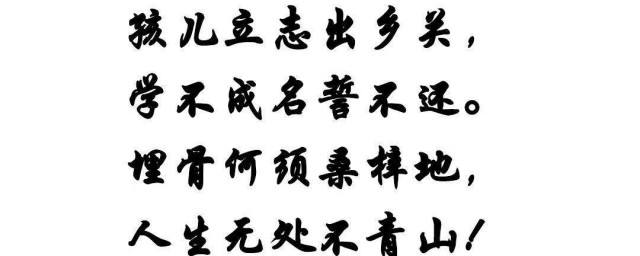 孩儿立志出乡关，
学不成名誓不还。
埋骨何须桑梓地，
人生无处不青山！